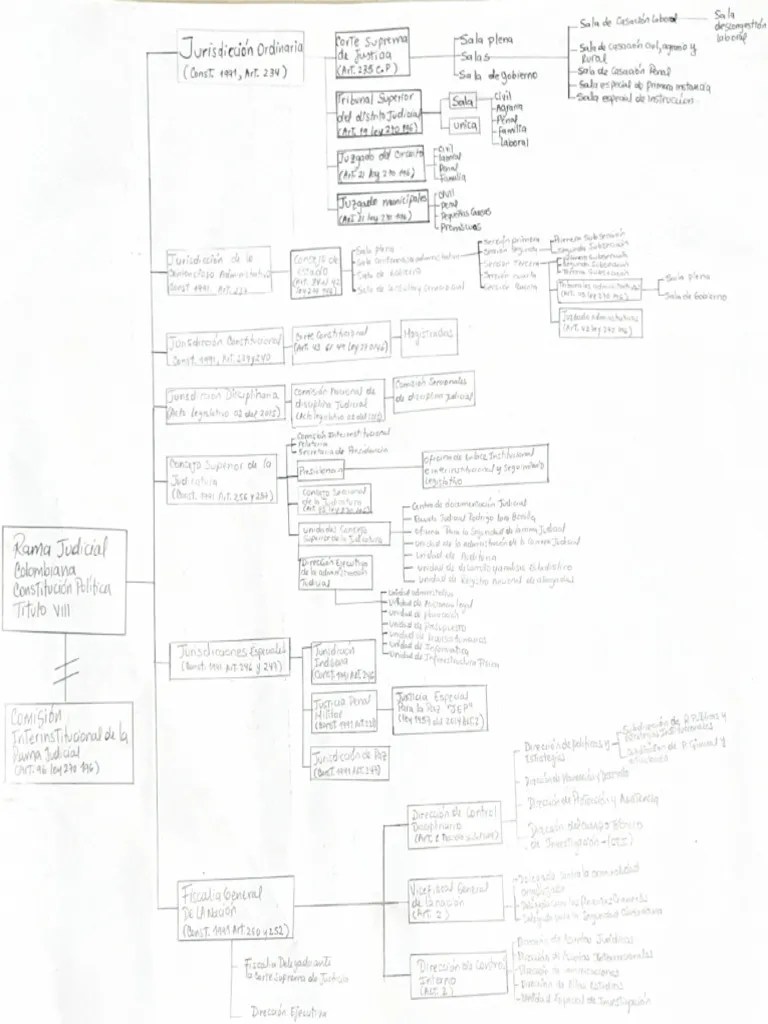 Jurisdicción Ordinaria
(Const. 1991, Art. 234)
Corte Suprema
de Justicia
(Art. 235 C.P)
Sala plena
Salas
Sala de Gobierno
Sala de Casación Laboral
Sala
descongestión
laboral
Sala de casación civil, agraria y
Rural
Sala de Casación Penal
Sala especial de primera instancia
Sala especial de instrucción
Tribunal Superior
del distrito Judicial
(Art. 19 ley 270 /96)
Sala
Unica
Civil
Agraria
Penal
Familia
Laboral
Juzgado del Circuito
(Art. 21 ley 270 /96)
Civil
Laboral
Penal
Familia
Juzgado municipales
(Art. 21 ley 270 /96)
Civil
Penal
Pequeñas Causas
Promiscuos
Jurisdicción de lo
Contencioso Administrativo
Const 1991, Art. 237
Consejo de
estado
Sala plena
Sala Contencioso administrativo
Sala de Gobierno
Sala de consulta y
Sección primera
Sección Segunda
Sección Tercera
Sección cuarta
Sección Quinta
Primera Subsección
Segunda Subsección
Primera subsección
Segunda Subsección
Tercera Subsección
Tribunales administrativos
Sala plena
Sala de Gobierno
Juzgados administrativos
(Art. 42 ley 270 /96)
Jurisdicción Constitucional
Const. 1991, Art. 239 y 240
Corte Constitucional
(Art. 43 ley 270/96)
Magistrados
Jurisdicción Disciplinaria
(Acto legislativo 02 del 2015)
Comisión Nacional de
disciplina Judicial
(Acto legislativo 02 del 2015)
Comisión Seccionales
de disciplina Judicial
Consejo Superior de la
Judicatura
(Const. 1991 Art. 256 y 257)
Comisión Interinstitucional
Relatoría
Secretaria de Presidencia
Presidencia
oficina de enlace Institucional
e interinstitucional y Seguimiento
Legislativo
Consejo Seccional
de la Judicatura
unidades Consejo
Superior de la Judicatura
Centro de documentación Judicial
Escuela Judicial Rodrigo Lara Bonilla
oficina Para la Seguridad de la rama Judicial
unidad de la administración de la Carrera Judicial
unidad de Auditoría
unidad de desarrollo y análisis Estadístico
unidad de Registro Nacional de abogados
Dirección Ejecutiva
de la administración
Judicial
unidad administrativa
unidad de Asistencia legal
unidad de planeación
unidad de Presupuesto
unidad de Recursos humanos
unidad de Informática
unidad de Infraestructura Física
Rama Judicial
Colombiana
Constitución Política
Título VIII
Comisión
Interinstitucional de la
Rama Judicial
(Art. 96 ley 270 /96)
Jurisdicciones Especiales
(Const. 1991 Art. 246 y 247)
Jurisdicción
Indígena
(Const. 1991 Art. 246
Justicia Penal
Militar
Justicia Especial
Para la Paz "JEP"
Jurisdicción de Paz
(Const. 1991 Art. 247)
Fiscalía General
DE LA Nación
(Const. 1991 Art. 250 y 252)
Fiscalía Delegada ante
la Corte Suprema de Justicia
Dirección Ejecutiva
Dirección de Control
Disciplinario
Dirección de políticas y
Estrategias
Dirección de Protección y Asistencia
Dirección de Cuerpo Técnico
de Investigación - (CTI)
Vicefiscal General
de la nación
(Art. 2)
Delegada contra la criminalidad
organizada
Delegada para la Seguridad Ciudadana
Dirección de Control
Interno
(Art. 2)
Dirección de Asuntos Jurídicos
Dirección de Asuntos Internacionales
Dirección de comunicaciones
Dirección de Altos Estudios
Unidad Especial de Investigación